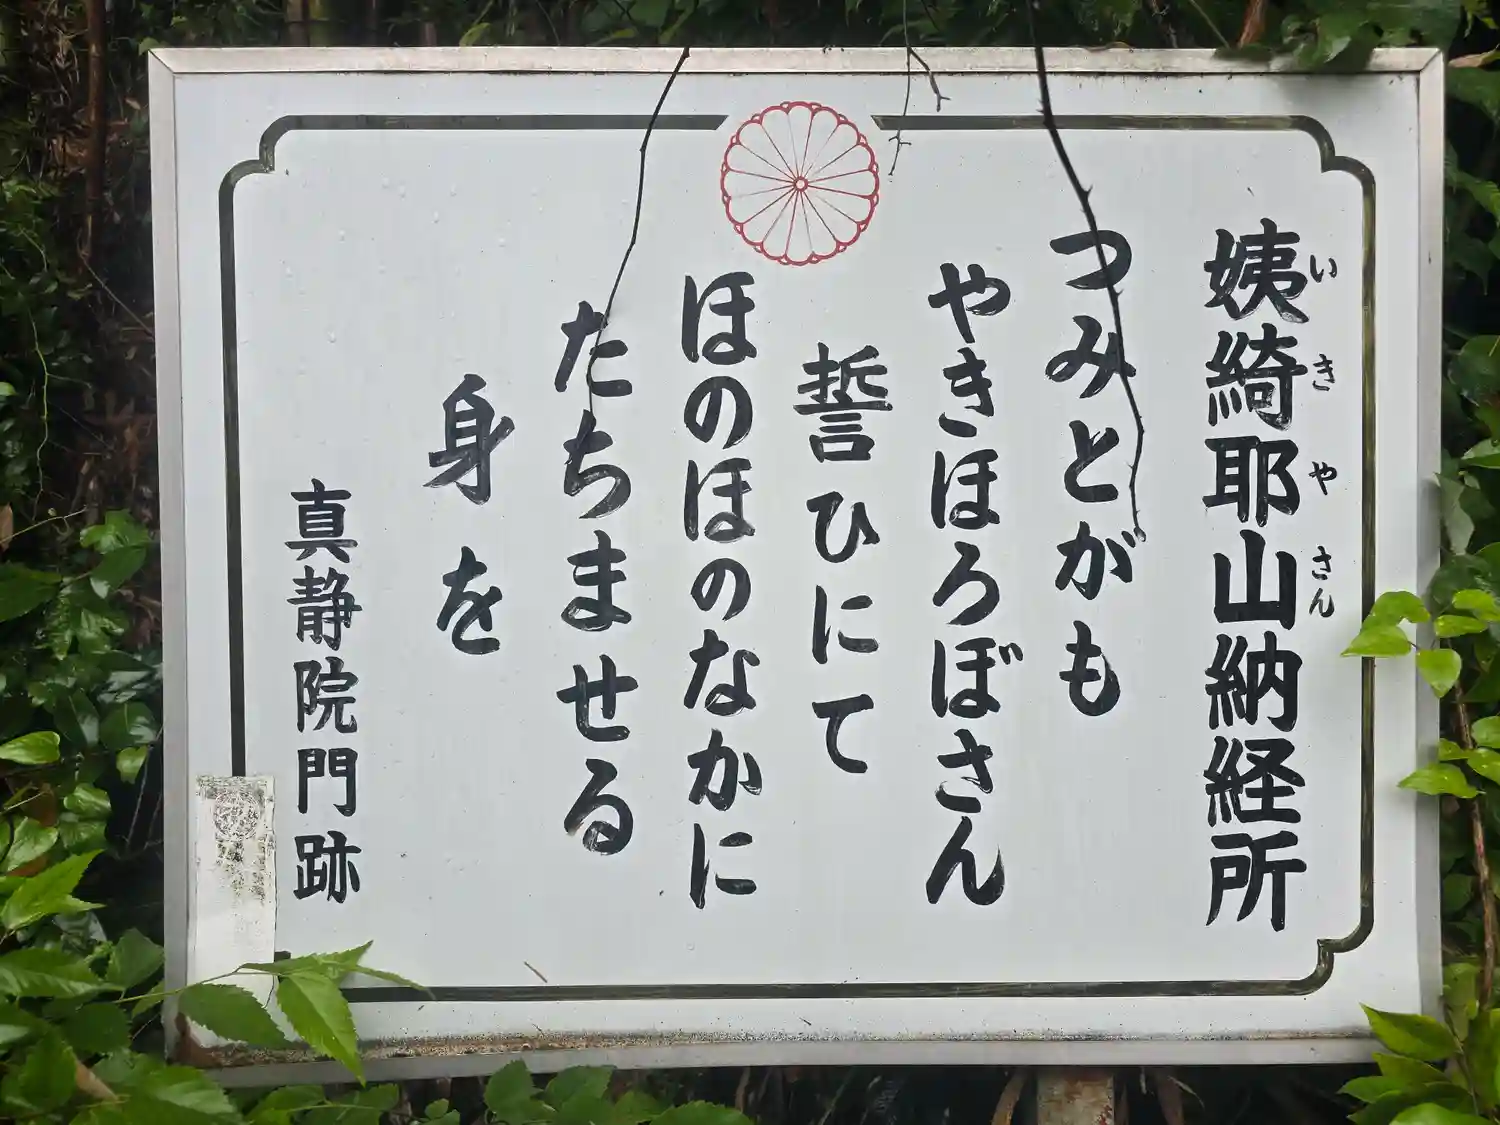 姨綺耶山納経所
いきやさん
つみとがも
やきほろぼさん
誓ひにて
ほのほのなかに
たちませる
身を
真静院門跡